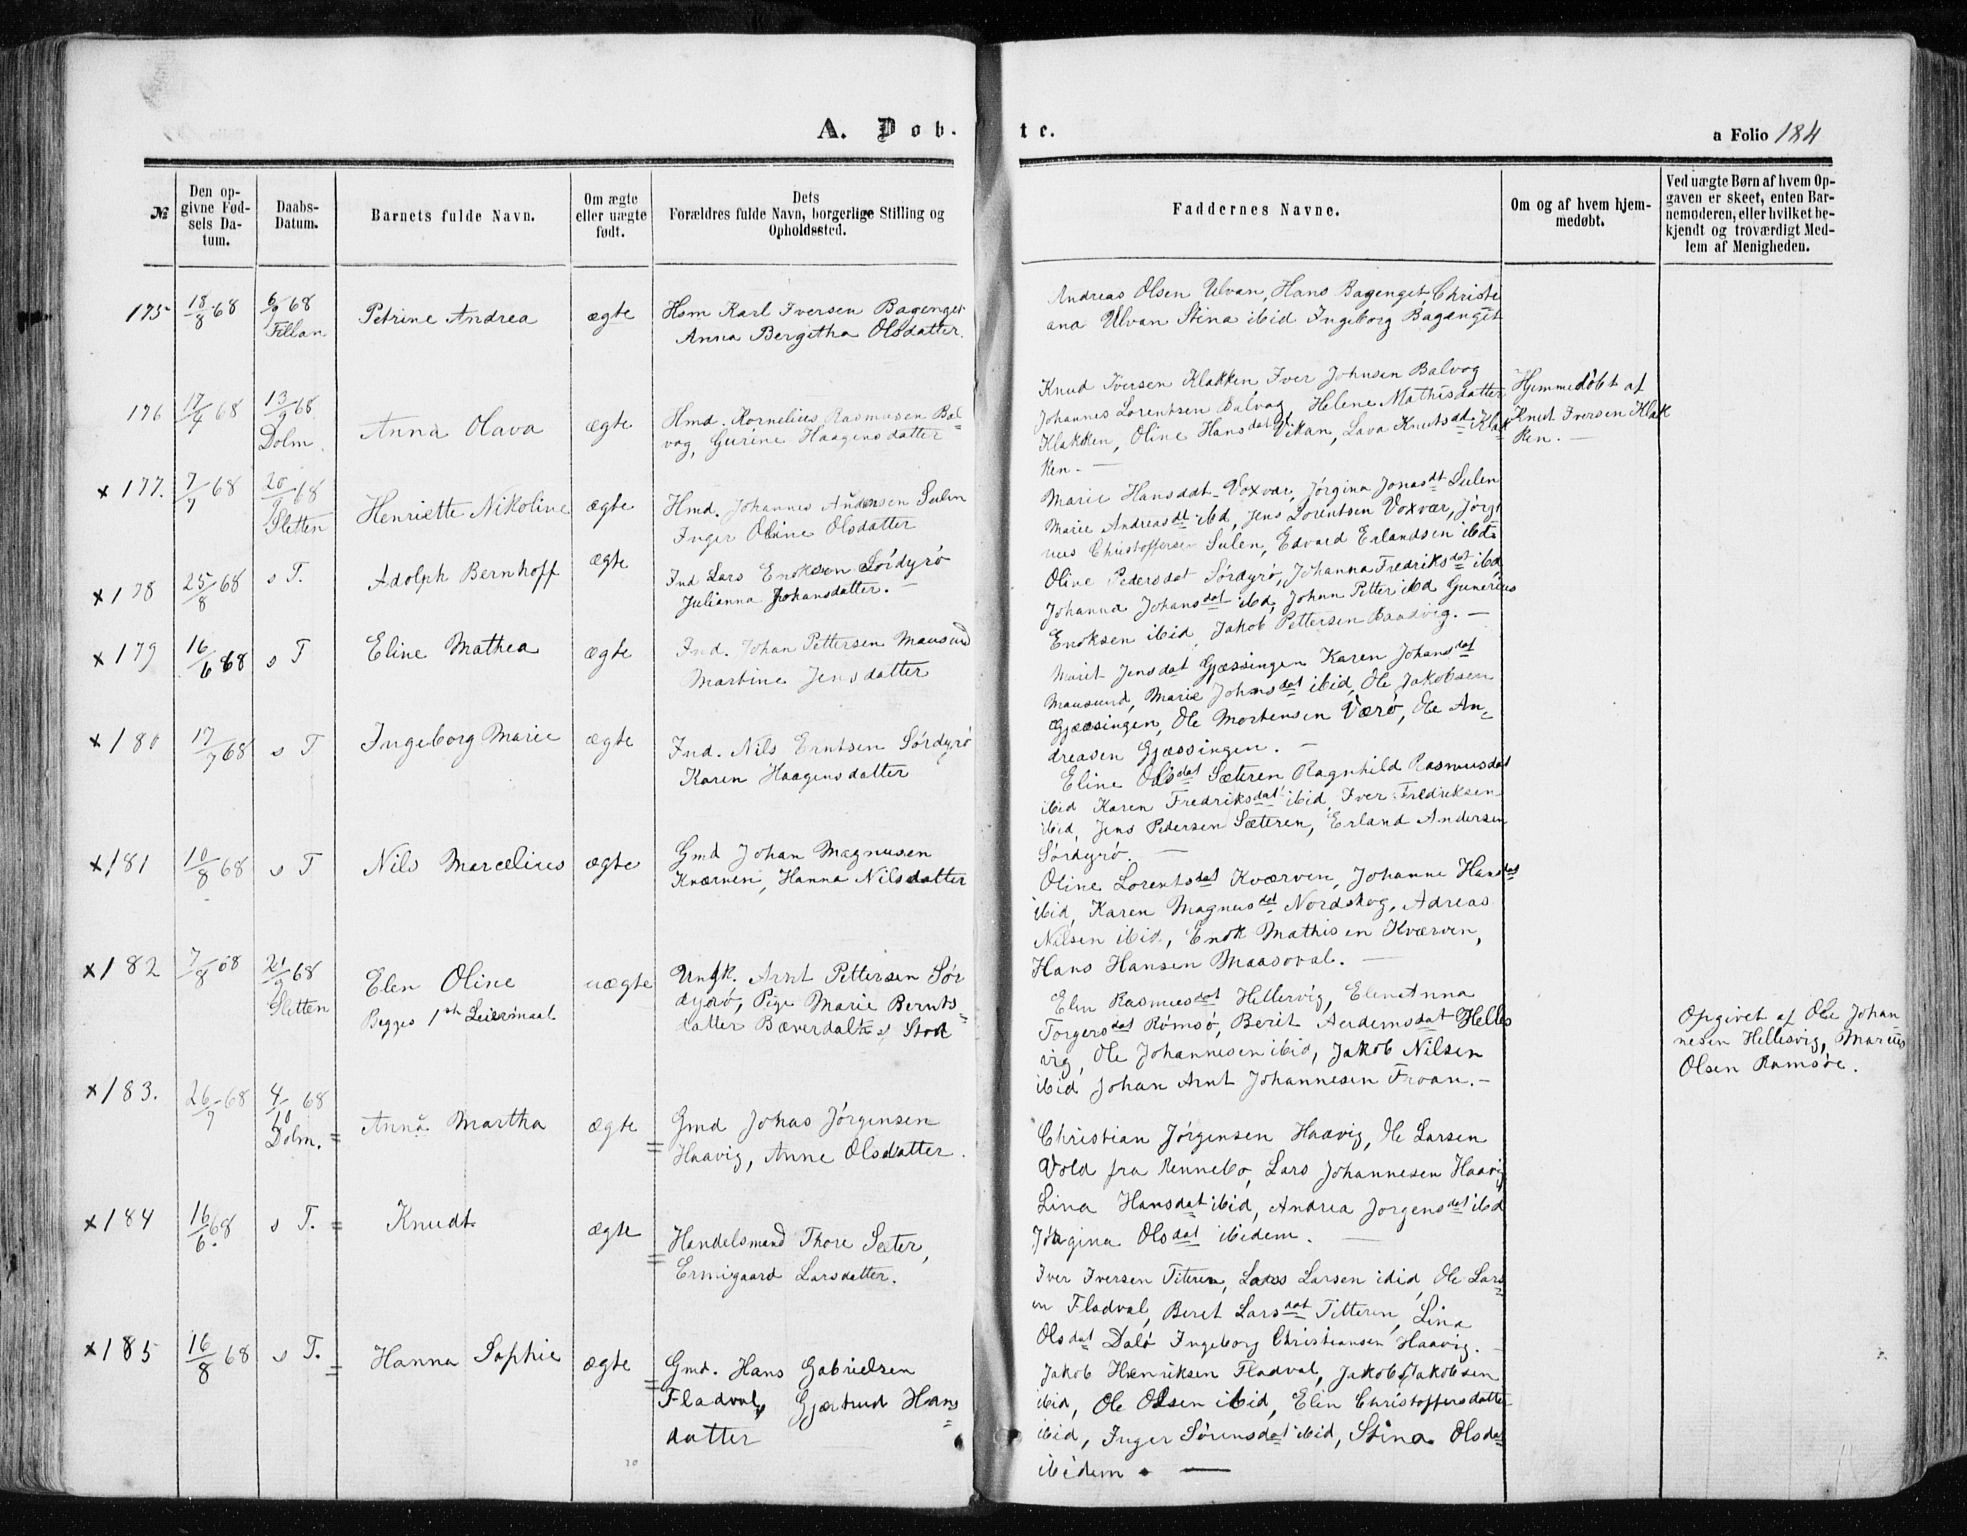 A. Døb.
te.
a Folio 184
№
Den op-
givne Fød-
sels Da-
tum.
Daabs-
Datum.
Barnets fulde Navn.
Om ægte
eller uægte
født.
Dets
Forældres fulde Navn, borgerlige Stilling og
Opholdssted.
Faddernes Navne.
Om og af hvem hjem-
medøbt.
Ved uægte Børn af hvem Op-
gaven er skeet, enten Bar-
nemoderen, eller hvilket be-
kjendt og troværdigt Med-
lem af Menigheden.
175
18/8 68
6/9 68
Fillan
Petrine Andrea
ægte
Hsm Karl Iversen Bagenget
Anna Bergitha Olsdatter.
Andreas Olsen Ulvan, Hans Bagenget, Christi
ana Ulvan Stina ibid Ingeborg Bagenget
176
17/4 68
13/9 68
Dolm.
Anna Olava
ægte
Hmd. Kornelius Rasmusen Bal=
vog, Gurine Haagensdatter
Knud Iversen Klakken Iver Johnsen Balvog
Johannes Lorentsen Balvog Helene Mathisdatter
Klakken, Oline Hansdat Vikan, Lava Knutsdt Klak
ken. —
Hjemmedøbt af
Knut Iversen Klak
ken. —
x 177.
7/7 68
20/9 68
Sletten
Henriette Nikoline
ægte
Hmd. Johannes Andersen Sulen
Inger Oline Olsdatter
Marie Hansdat Voxvær, Jørgina Jonasdt Sulen
Marie Andreasdt ibid, Jens Lorentsen Voxvær, Jørgi
nus Christoffersen Sulen, Edvard Erlandsen ibid.
x 178
25/8 68
s T.
Adolph Bernhoff
ægte
Ind Lars Enoksen Sørdyrø
Julianna Johansdatter.
Oline Pedersdat Sørdyrø, Johanna Fredriksdat ibid
Johanna Johansdat ibid, Johan Petter ibid Gunerius
Enoksen ibid, Jakob Pettersen Baadvig. —
x 179
16/6 68
s T
Eline Mathea
ægte
Ind. Johan Pettersen Mausund
Martine Jensdatter
Marit Jensdat Gjæssingen Karen Johansdat
Mausund, Marie Johnsdat ibid, Ole Jakobsen
Gjæssingen, Ole Mortensen Værø, Ole An=
dreasen Gjæssingen. —
x 180
17/7 68
s T
Ingeborg Marie
ægte
Ind. Nils Erntsen Sørdyrø
Karen Haagensdatter
Eline Olsdat Sæteren Ragnhild Rasmusdat
ibid Karen Fredriksdat ibid, Iver Fredriksen
ibid, Jens Pedersen Sæteren, Erland Andersen
Sørdyrø. —
x 181
10/8 68
s T
Nils Marcelius
ægte
Gmd Johan Magnusen
Kværnen, Hanna Nilsdatter
Oline Lorentsdat Kværven, Johanne Hansdat
ibid, Karen Magnusdat Nordskog, Adreas
Nilsen ibid, Enok Mathisen Kværven,
Hans Hansen Maasoval. —
x 182
7/8 68
21/9 68
Sletten
Elen Oline
Begges 1ste Leiermaal
uægte
Ungk. Arnt Pettersen Sør
dyrø, Pige Marie Bernts=
datter Bæverdalen
Elen Rasmusdat Hellervig, Elen Anna
Torgersdat Rømsø, Berit Andemsdat Helles
vig, Ole Johannesen ibid, Jakob Nilsen
ibid Johan Arnt Johannesen Froan. —
Opgivet af Ole Johan=
nesen Hellesvig, Marius
Olsen Ramsøe.
x 183.
26/7 68
4/10 68
Dolm.
Anna Martha
ægte
Gmd Johas Jørgensen
Haavig, Anne Olsdatter.
Christian Jørgensen Haavig, Ole Larsen
Vold fra Rennebo, Lars Johannesen Haavig
Lina Hansdat ibid, Andrea Jorgensdat ibid
Jørgina Olsdat ibidem. —
x 184
16/6 68
s T.
Knudt
ægte
Handelsmand Thore Sæter,
Ermigaard Larsdatter.
Iver Iversen Titeren, Lars Larsen idid, Ole Lars=
en Fladval, Beret Larsdat Titteren, Lina
Olsdat Dalø Ingeborg Christiansen Haavig. —
x 185
16/8 68
s T.
Hanna Sophie
ægte
Gmd. Hans Gabrielsen
Fladval, Gjertrud Hans
datter
Jakob Henriksen Fladval, Jakob Jakobsen
ibid, Ole Olsen ibid, Elen Christoffersdatter
ibid, Inger Sørensdat ibid, Stina Olsdat
ibidem. —